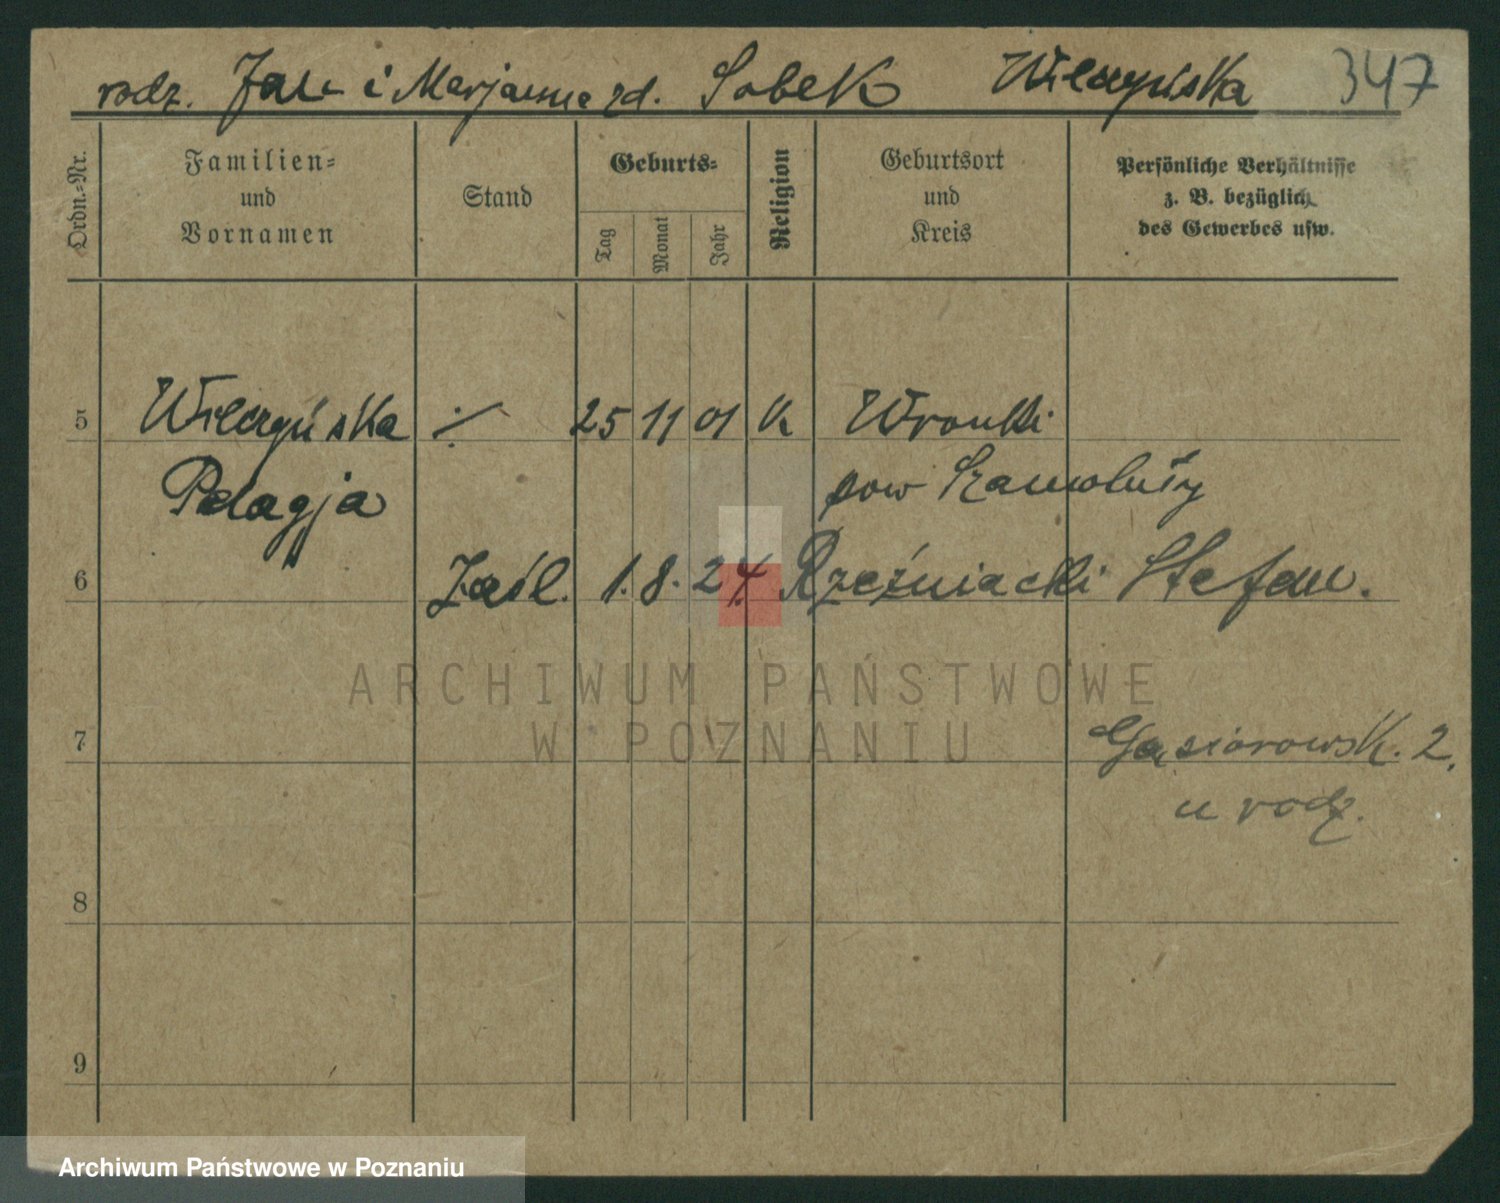 rodz. Jan i Marjanna zd. Sobek Wilczyńska 347
Ordn.-Nr.
Familien-
und
Vornamen
Stand
Geburts-
Tag
Monat
Jahr
Religion
Geburtsort
und
Kreis
Persönliche Verhältnisse
z. B. bezüglich
des Gewerbes usw.
5 Wilczyńska ./. 25 11 01 k Wronki
Pelagja pow Szamotuły
6 Zaśl. 1. 8. 24. Rzeźniacki Stefan.
ARCHIWUM PAŃSTWOWE
W POZNANIU
7 Gąsiorowsk. 2.
u rodz.
8
9
Archiwum Państwowe w Poznaniu